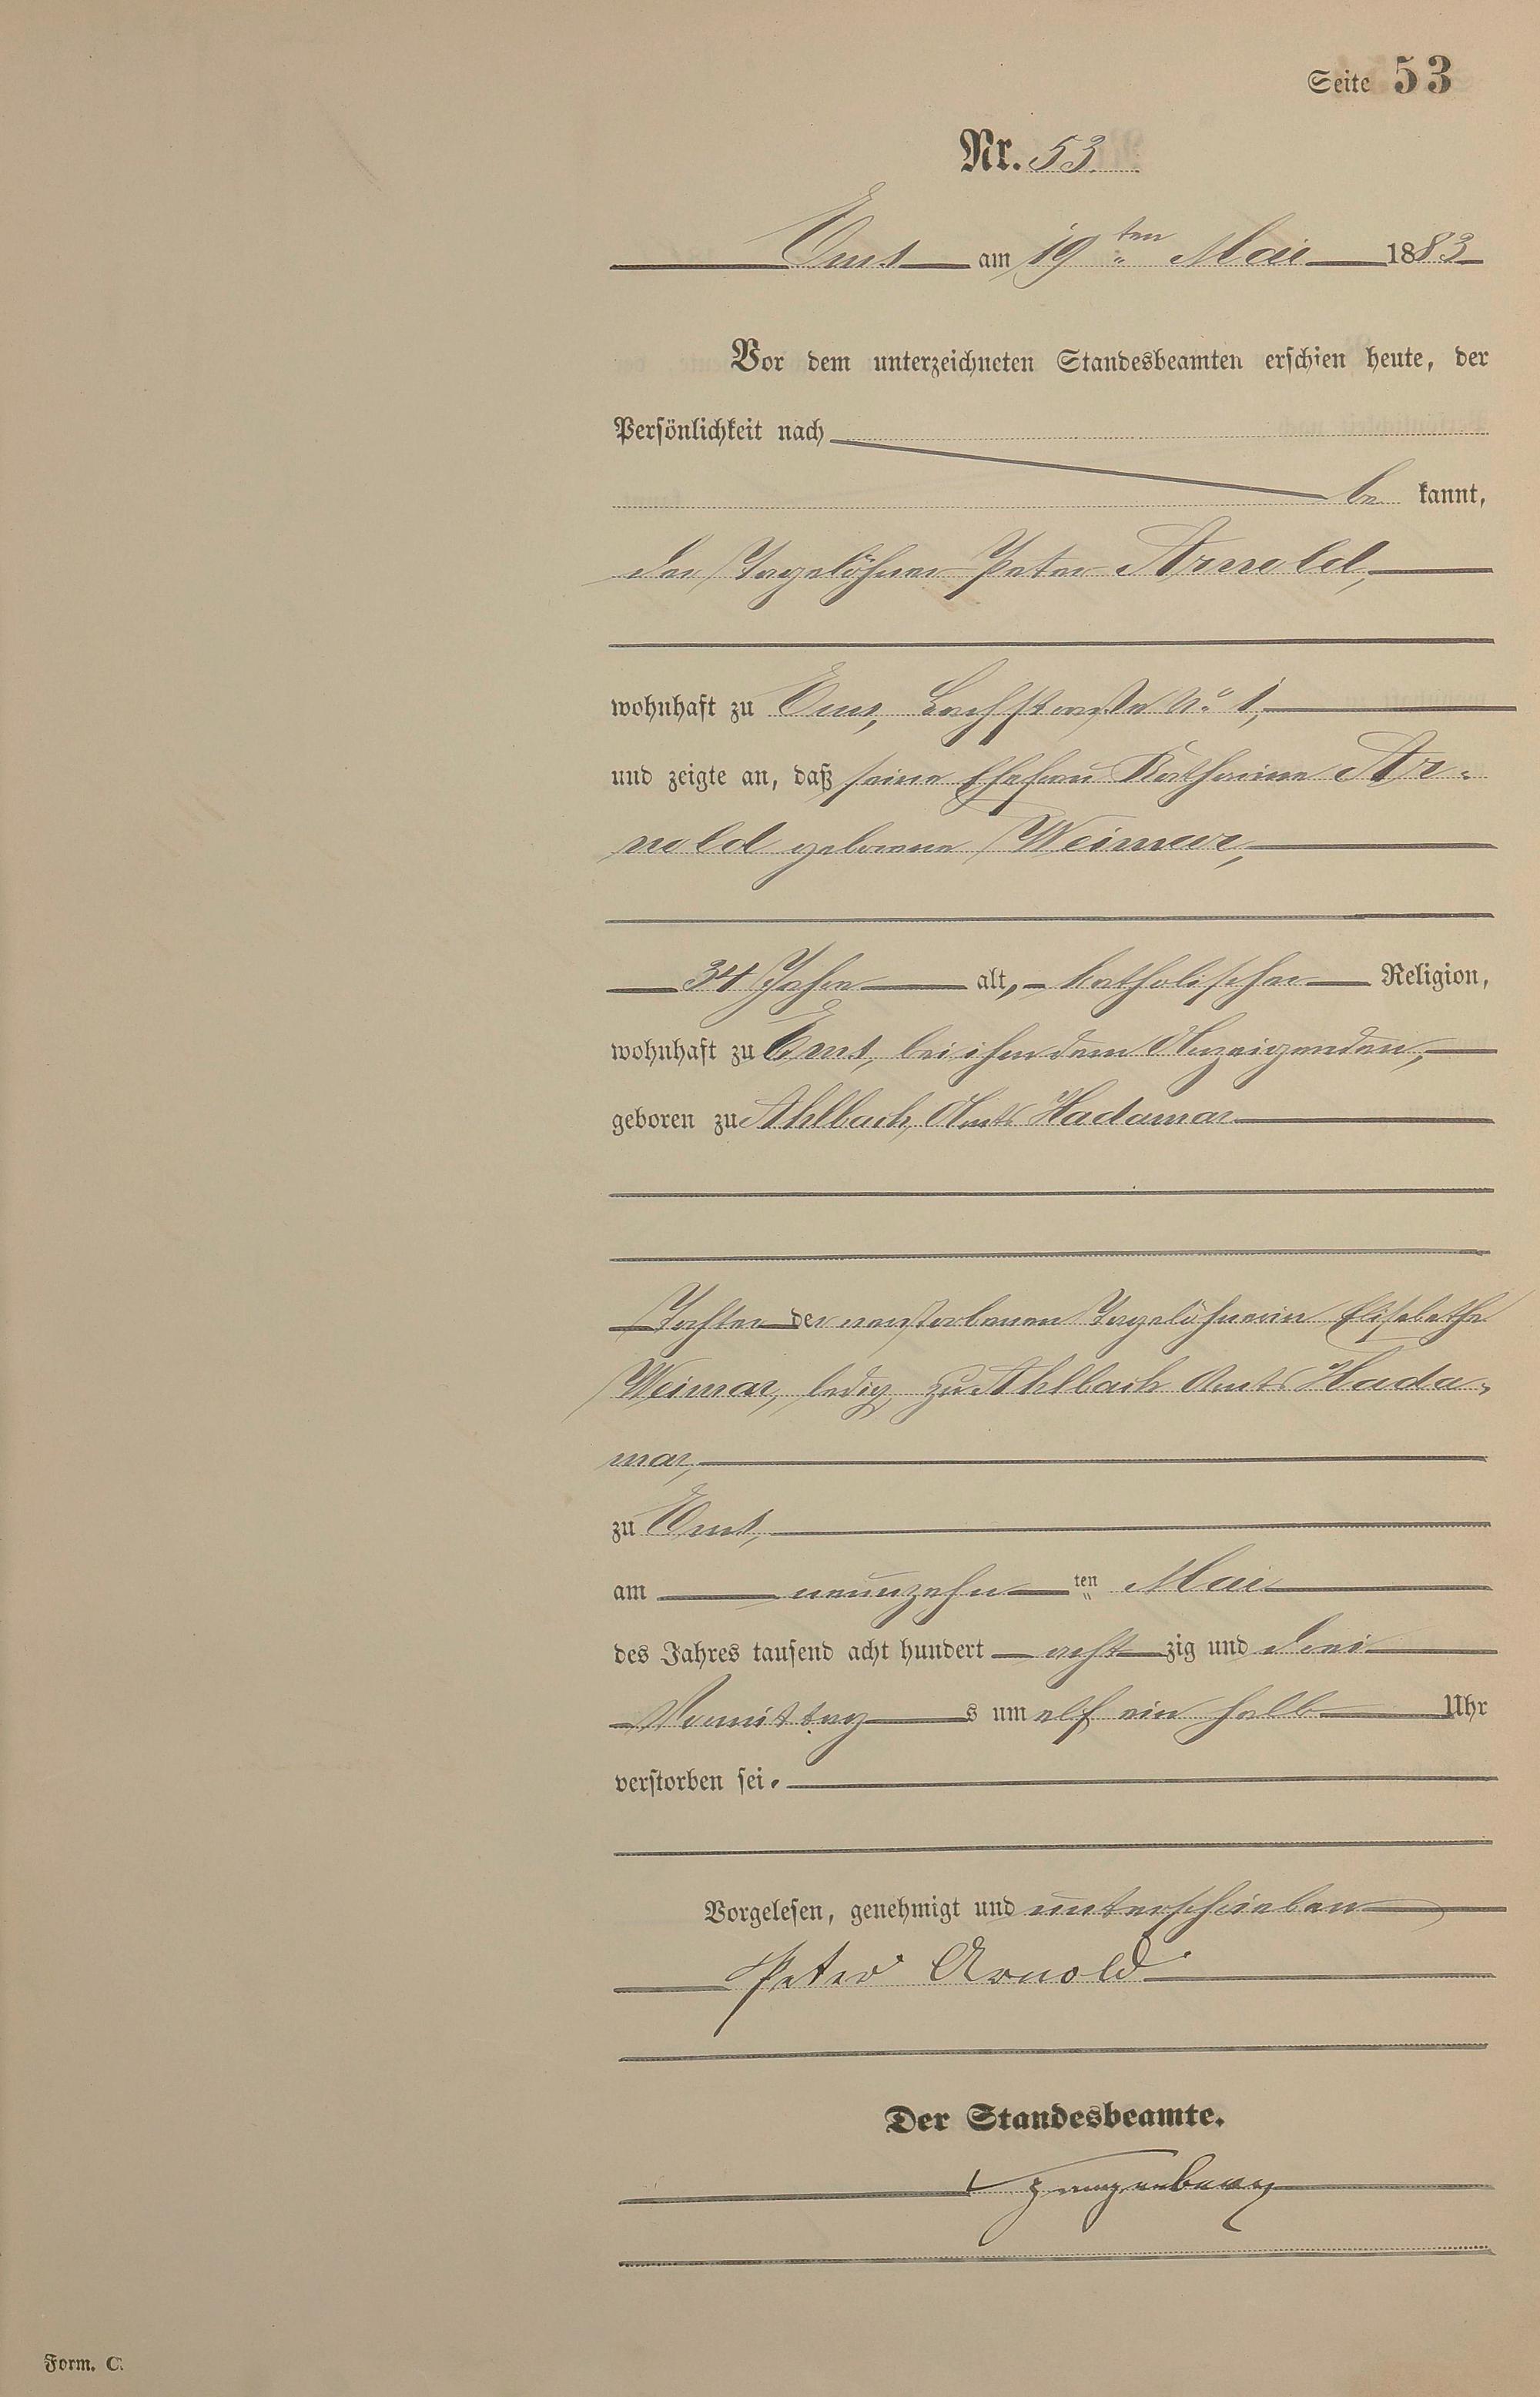 Seite 53
Nr. 53.
Ems am 19ten Mai 1883
Vor dem unterzeichneten Standesbeamten erschien heute, der
Persönlichkeit nach
be kannt,
der Tagelöhner Peter Arnold,
wohnhaft zu Ems, Bachstraße No 1,
und zeigte an, daß seine Ehefrau Katharina Ar-
nold geborene Weimar,
34 Jahre alt, katholischer Religion,
wohnhaft zu Ems, bei ihm dem Anzeigenden,
geboren zu Ahlbach, Amts Hadamar
Tochter der verstorbenen Tagelöhnerin Elisabethe
Weimar, ledig, zu Ahlbach Amts Hada-
mar,
zu Ems,
am neunzehn ten Mai
des Jahres tausend acht hundert acht zig und drei
Vormittag s um elf ein halb Uhr
verstorben sei.
Vorgelesen, genehmigt und unterschrieben
Peter Arnold
Der Standesbeamte.
Form. C.